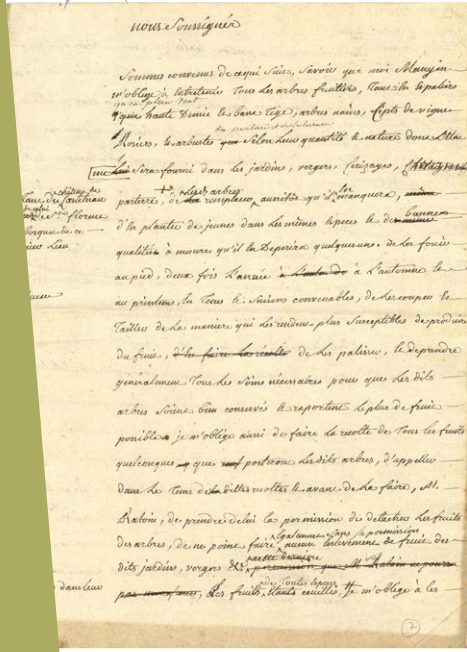 nous Soussignés
Sommes convenus de ce qui Suit, Savoir que moi Mangin
m'oblige à Entretenir Tous les arbres fruitiers, Tant En Espaliers
qu'en plein vent
qu'à haute demie et basse tige, arbres nains, Seps de vigne
Rosiers, et arbustes que Selon leur quantité et nature dont
Sera fourni dans les jardins, vergers, Cerisages,
les arbres
parterre, de remplacer aussitôt qu'il En manquera, même
d'En planter de jeunes dans les mêmes espèces et de bonnes
qualités à mesure qu'il En Deperira quelques uns. de les fouir
au pied, deux fois L'année à L'automne et
au printems, En Tems et Saisons convenables, de les couper et
Tailler de la maniere qui les rendent plus Susceptibles de produire
du fruit, d'En faire la récolte de les palisser, et de prendre
généralement Tous les Soins nécessaires pour que les dits
arbres Soient bien conservés et raportent le plus de fruit
possible. je m'oblige aussi de faire la récolte de Tous les fruits
quelconques que porteront les dits arbres, d'appeller
dans le Tems de la ditte récoltes et avant de la faire, M.
Ratoin, de prendre de lui la permission de détacher les fruits
Egalement Sans Sa permission
des arbres, de ne point faire aucun Enlevement de fruit des
dits jardins, vergers &c,
de Toutes Especes
Les fruits, Etants cueillis, Je m'oblige à les
château de
Ste florine
ce
Lieu
dans leur
2